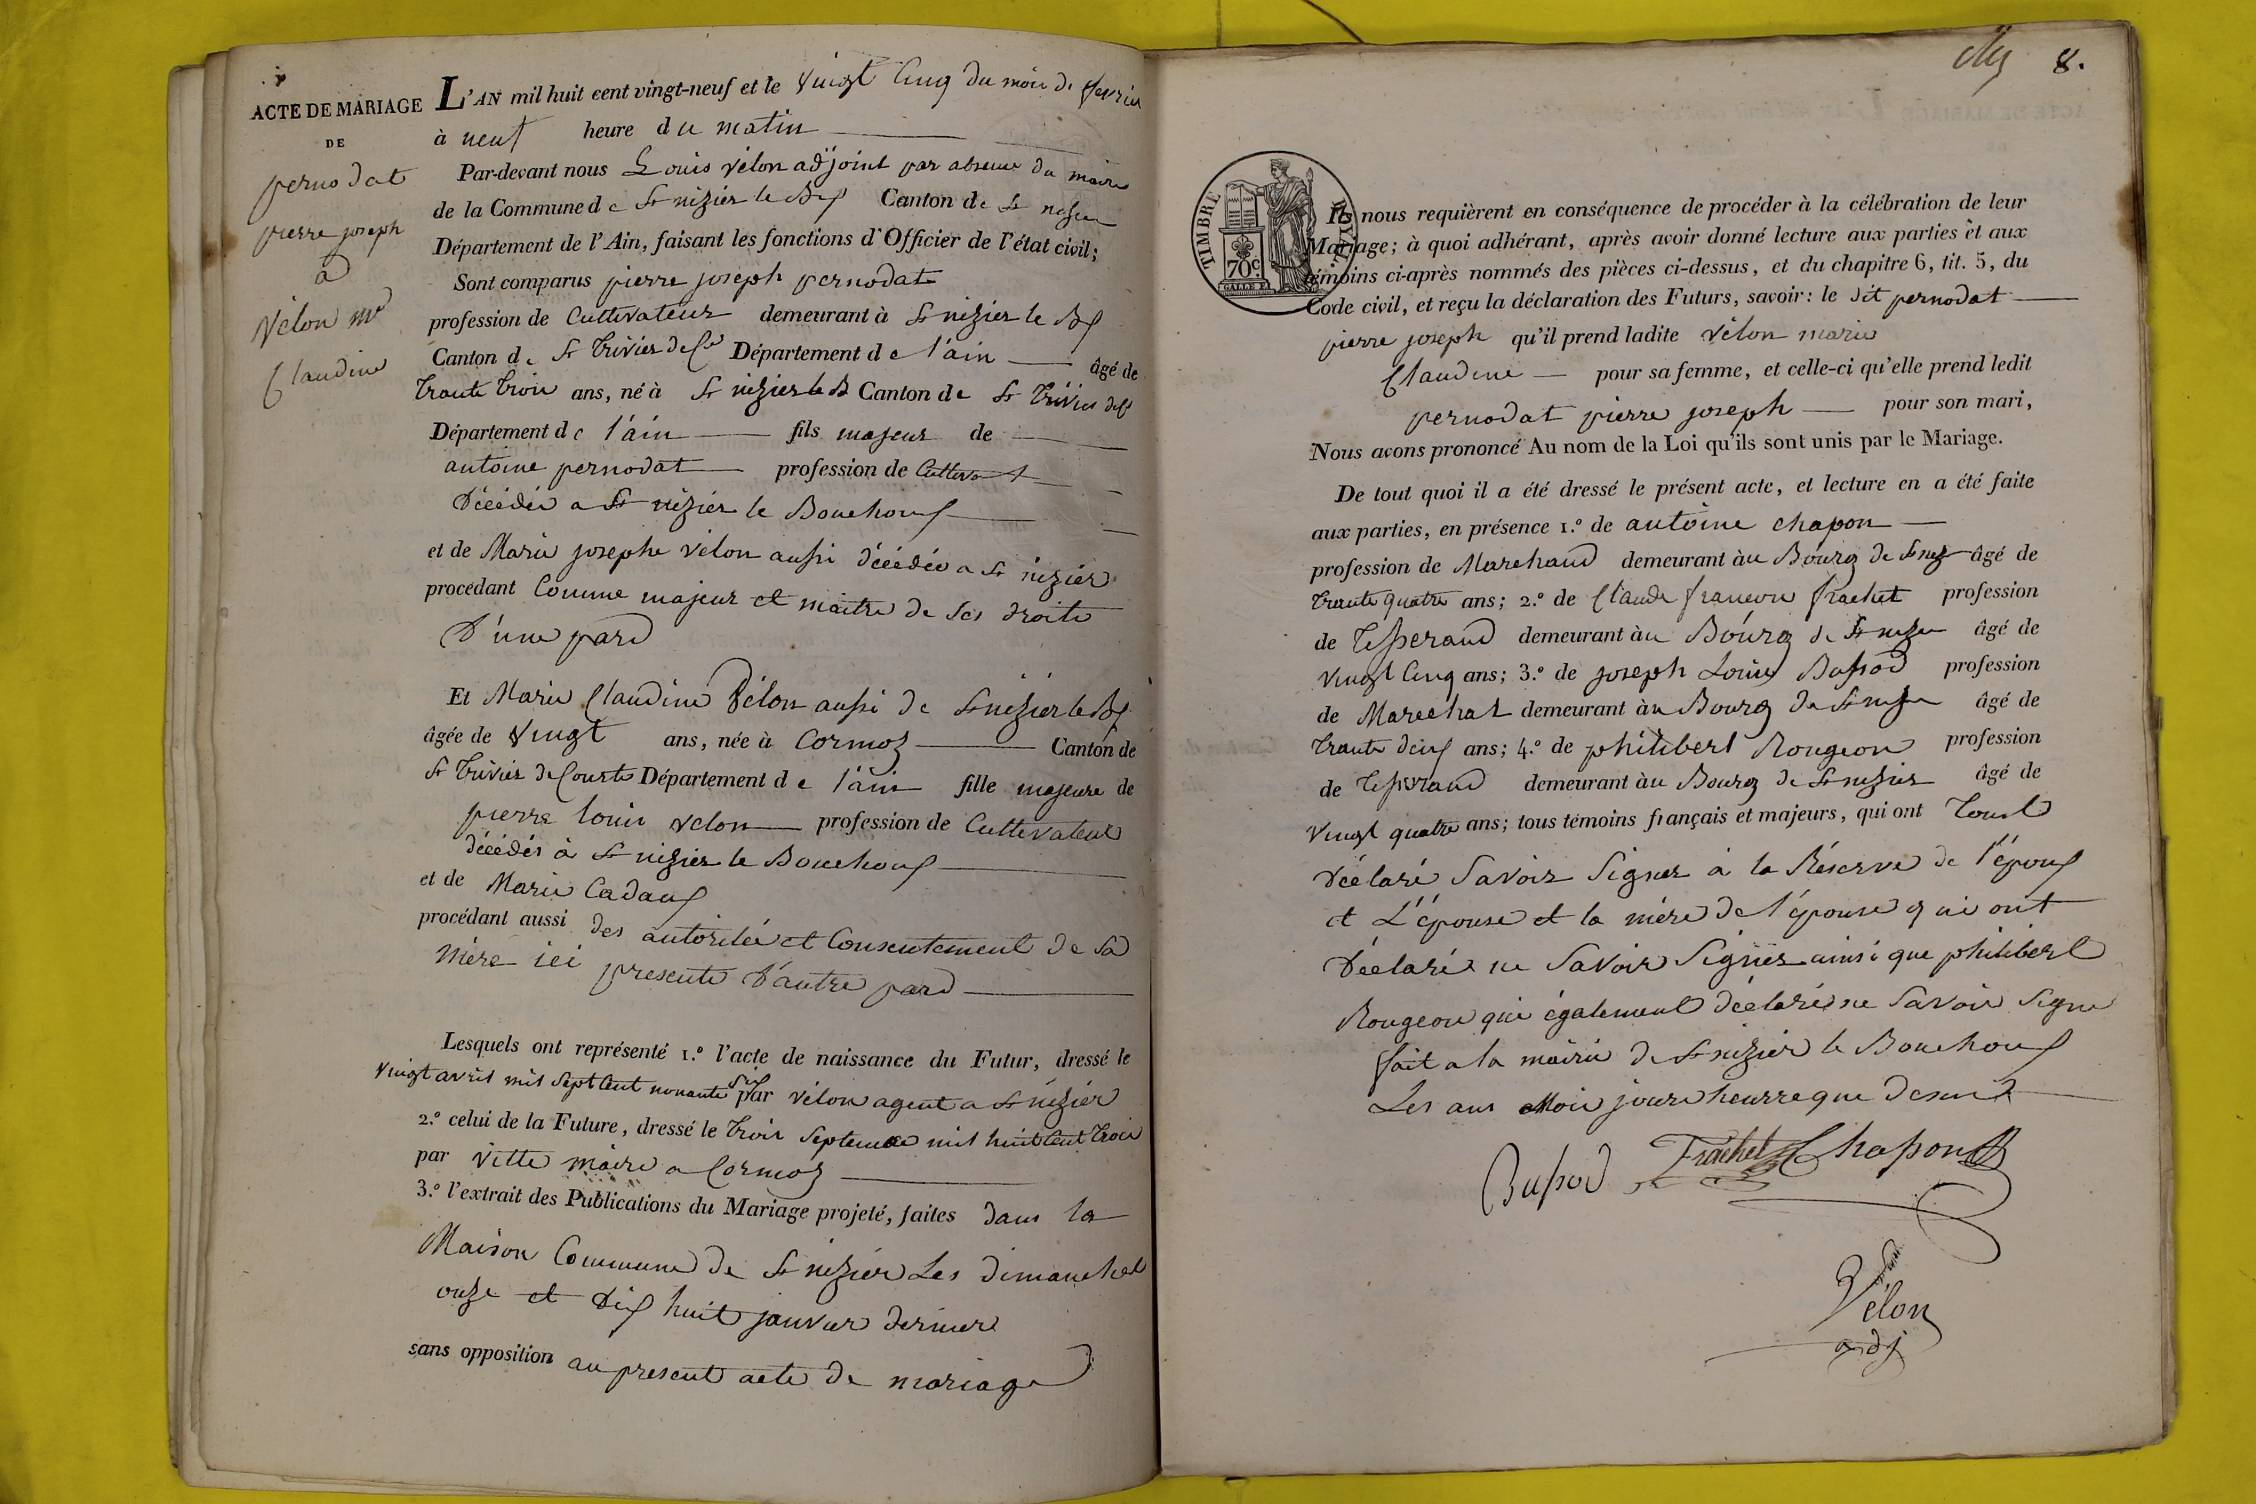 ACTE DE MARIAGE
DE
pernodat
pierre joseph
a
Vélon Me
Claudine
L'AN mil huit cent vingt-neuf et le vingt Cinq du mois de fevrier
à neuf heure du matin
Par-devant nous Louis vélon adjoint par absence du maire
de la Commune de St nizier le Bf Canton de St
Département de l'Ain, faisant les fonctions d'Officier de l'état civil;
Sont comparus pierre joseph pernodat
profession de Cultivateur demeurant à St nizier le Bf
Canton de St Trivier de Ct Département de l'ain âgé de
trante trois ans, né à St nizier le B Canton de St Trivier
Département de l'ain fils majeur de
antoine pernodat profession de
décédé a St nizier le Bouchouf
et de Marie josephe vélon aussi décédée a St nizier
procédant Comme majeur et maitre de ses droits
D'une pard
Et Marie Claudine Vélon aussi de St nizier le Bf
âgée de vingt ans, née à Cormoz Canton de
St Trivier de Courts Département de l'ain fille majeure de
pierre louis velon profession de Cultivateur
décédés à St nizier le Bouchouf
et de Marie Cadauf
procédant aussi des autorités et Consentement de sa
mère ici presente D'autre pard
Lesquels ont représenté 1.º l'acte de naissance du Futur, dressé le
vingt avril mil sept Cent nonante six par vélon agent a St nizier
2.º celui de la Future, dressé le trois septembre mil huit Cent trois
par vitte maire a Cormoz
3.º l'extrait des Publications du Mariage projeté, faites dans la
Maison Commune de St nizier Les dimanches
onze et dix huit janvier dernier
sans opposition au present acte de mariage
8.
TIMBRE ROYAL
70c.
Ils nous requièrent en conséquence de procéder à la célébration de leur
Mariage; à quoi adhérant, après avoir donné lecture aux parties et aux
témoins ci-après nommés des pièces ci-dessus, et du chapitre 6, tit. 5, du
Code civil, et reçu la déclaration des Futurs, savoir: le dit pernodat
pierre joseph qu'il prend ladite vélon marie
Claudine pour sa femme, et celle-ci qu'elle prend ledit
pernodat pierre joseph pour son mari,
Nous avons prononcé Au nom de la Loi qu'ils sont unis par le Mariage.
De tout quoi il a été dressé le présent acte, et lecture en a été faite
aux parties, en présence 1.º de antoine chapon
profession de Marchand demeurant àu Bourg de St âgé de
trante quatre ans; 2.º de Claude francois frachet profession
de tisserand demeurant àu Bourg de St âgé de
vingt Cinq ans; 3.º de joseph Louis Bussod profession
de Marechal demeurant àu Bourg de St âgé de
trante deux ans; 4.º de philibert Rougeon profession
de tisserand demeurant àu Bourg de St nizier âgé de
vingt quatre ans; tous témoins français et majeurs, qui ont tous
déclaré savoir signer à la Réserve de l'époux
et L'épouse et la mère de l'épouse qui ont
déclaré ne savoir signer ainsi que philibert
Rougeon qui également déclaré ne savoir signe
fait a la mairie de St nizier le Bouchouf
Les ans Mois jour heurre que dessus
Bussod Frachet Chapon
Vélon
adj